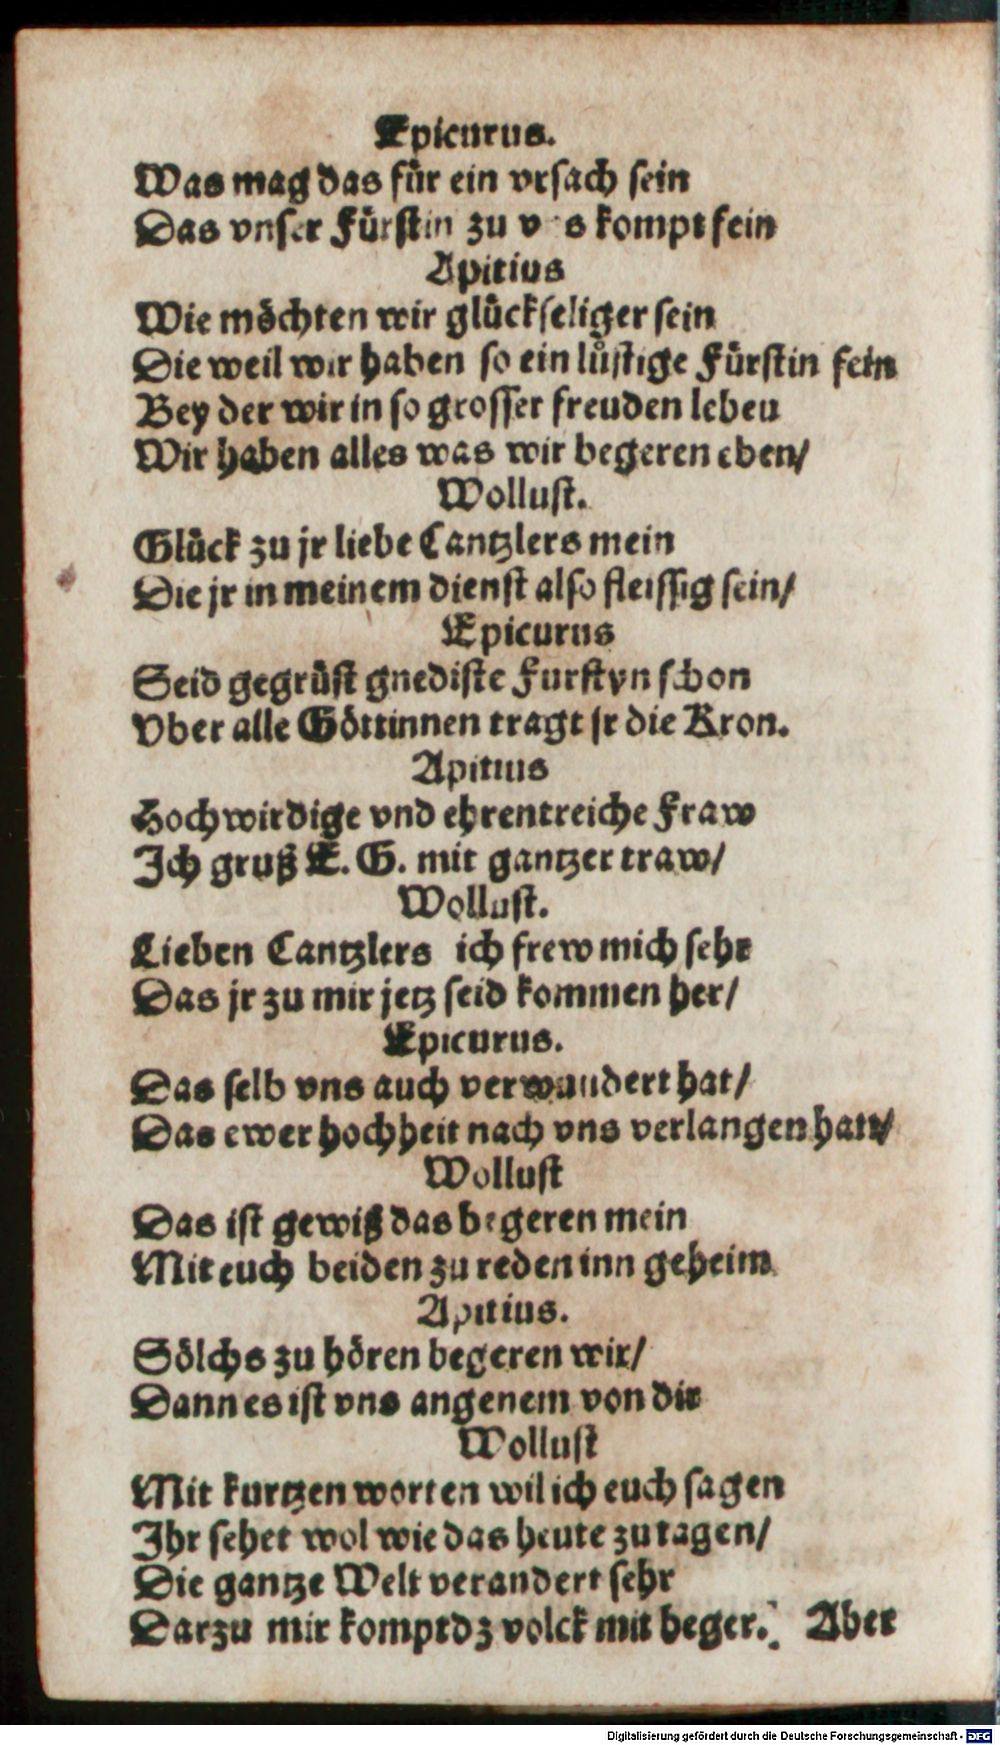 Epicurus.
Was mag das für ein vrsach sein
Das vnser Fürstin zu vns kompt fein
Apitius
Wie möchten wir glückseliger sein
Die weil wir haben so ein lůstige Fürstin fein
Bey der wir in so grosser freuden leben
Wir haben alles was wir begeren eben/
Wollust.
Glück zu jr liebe Cantzlers mein
Die jr in meinem dienst also fleissig sein/
Epicurus
Seid gegrüst gnediste Furstyn schon
Vber alle Göttinnen tragt jr die Kron.
Apitius
Hochwirdige vnd ehrentreiche Fraw
Ich gruß E. G. mit gantzer traw/
Wollust.
Lieben Cantzlers ich frew mich sehr
Das jr zu mir jetz seid kommen her/
Epicurus.
Das selb vns auch verwundert hat/
Das ewer hochheit nach vns verlangen hatt/
Wollust
Das ist gewiß das begeren mein
Mit euch beiden zu reden inn geheim
Apitius.
Sölchs zu hören begeren wir/
Dann es ist vns angenem von dir
Wollust
Mit kurtzen worten wil ich euch sagen
Ihr sehet wol wie das heute zu tagen/
Die gantze Welt verandert sehr
Darzu mir kompt dz volck mit beger. Aber
Digitalisierung gefördert durch die Deutsche Forschungsgemeinschaft - DFG